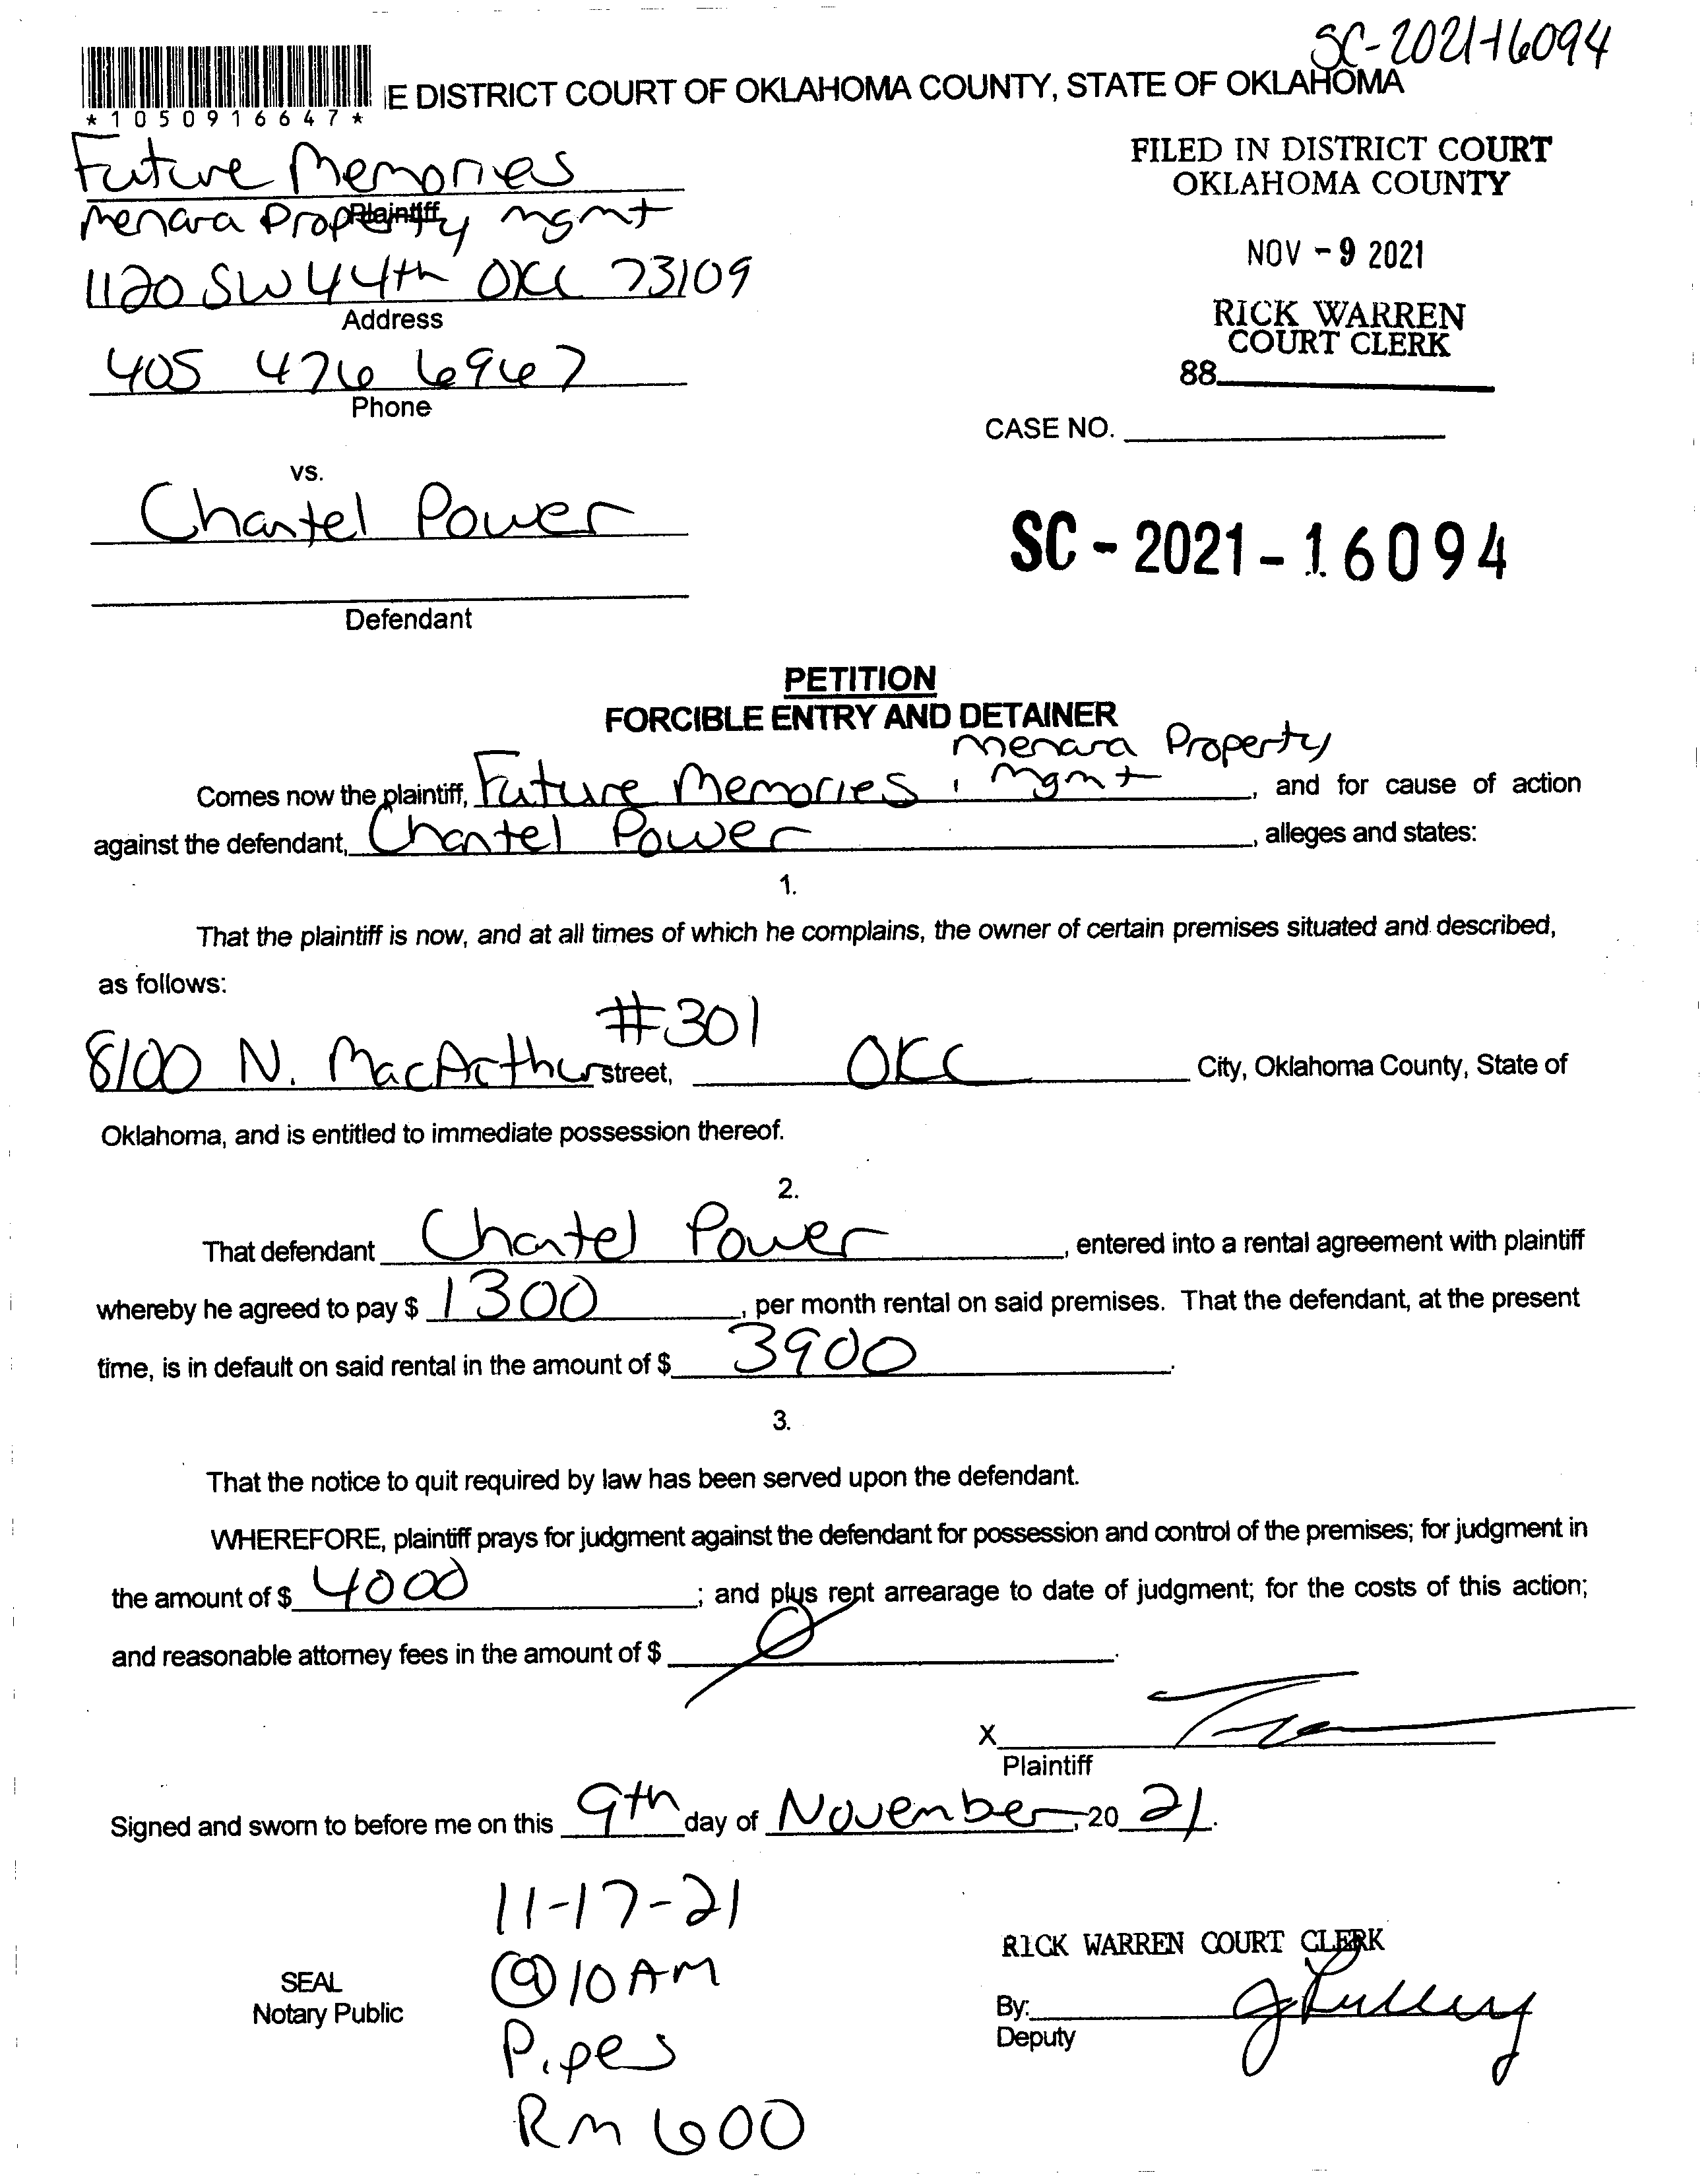 SC-2021-16094
*1050916647*
E DISTRICT COURT OF OKLAHOMA COUNTY, STATE OF OKLAHOMA
Future Memories
Plaintiff
Menara Property mgmt
1120 SW 44th OKC 73109
Address
405 476 6967
Phone
FILED IN DISTRICT COURT
OKLAHOMA COUNTY
NOV - 9 2021
RICK WARREN
COURT CLERK
88
CASE NO.
vs.
Chantel Power
Defendant
SC - 2021 - 16094
PETITION
FORCIBLE ENTRY AND DETAINER
Menara Property
Comes now the plaintiff, Future Memories, mgmt, and for cause of action
against the defendant, Chantel Power, alleges and states:
1.
That the plaintiff is now, and at all times of which he complains, the owner of certain premises situated and described,
as follows:
#301
8100 N. MacArthur street, OKC City, Oklahoma County, State of
Oklahoma, and is entitled to immediate possession thereof.
2.
That defendant Chantel Power, entered into a rental agreement with plaintiff
whereby he agreed to pay $ 1300, per month rental on said premises. That the defendant, at the present
time, is in default on said rental in the amount of $ 3900.
3.
That the notice to quit required by law has been served upon the defendant.
WHEREFORE, plaintiff prays for judgment against the defendant for possession and control of the premises; for judgment in
the amount of $ 4000; and plus rent arrearage to date of judgment; for the costs of this action;
and reasonable attorney fees in the amount of $ 0.
X
Plaintiff
Signed and sworn to before me on this 9th day of November, 20 21.
11-17-21
@ 10 AM
Pipes
Rm 600
SEAL
Notary Public
RICK WARREN COURT CLERK
By:
Deputy